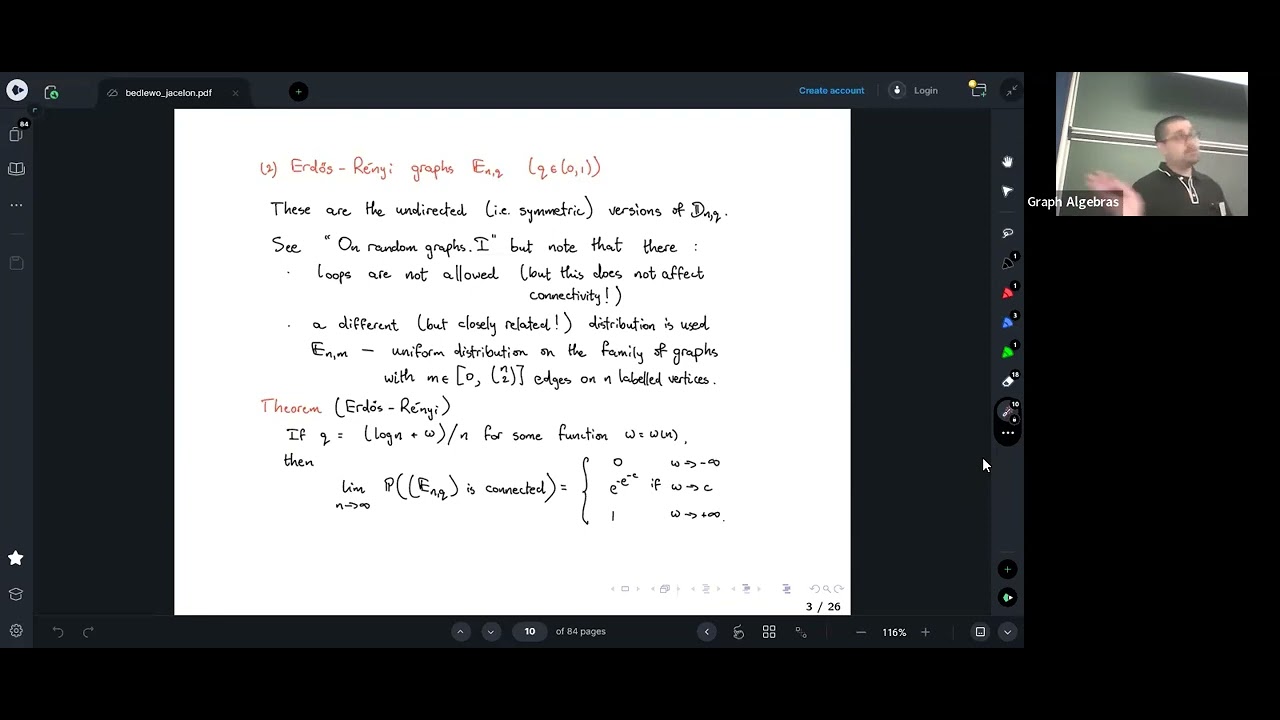 bedlewo_jacelon.pdf
Create account
Login
84
(2) Erdős-Rényi graphs 𝔼n,q (q∈(0,1))
These are the undirected (i.e. symmetric) versions of 𝔻n,q.
See "On random graphs. I" but note that there :
· loops are not allowed (but this does not affect
connectivity!)
· a different (but closely related!) distribution is used
𝔼n,m — uniform distribution on the family of graphs
with m∈[0, (n 2)] edges on n labelled vertices.
Theorem (Erdős-Rényi)
If q = (log n + ω)/n for some function ω=ω(n),
then
lim n→∞ ℙ((𝔼n,q) is connected) = { 0 ω→-∞
e^-e^-c if ω→c
1 ω→+∞.
3 / 26
10 of 84 pages
116%
1
1
3
1
18
10
Graph Algebras